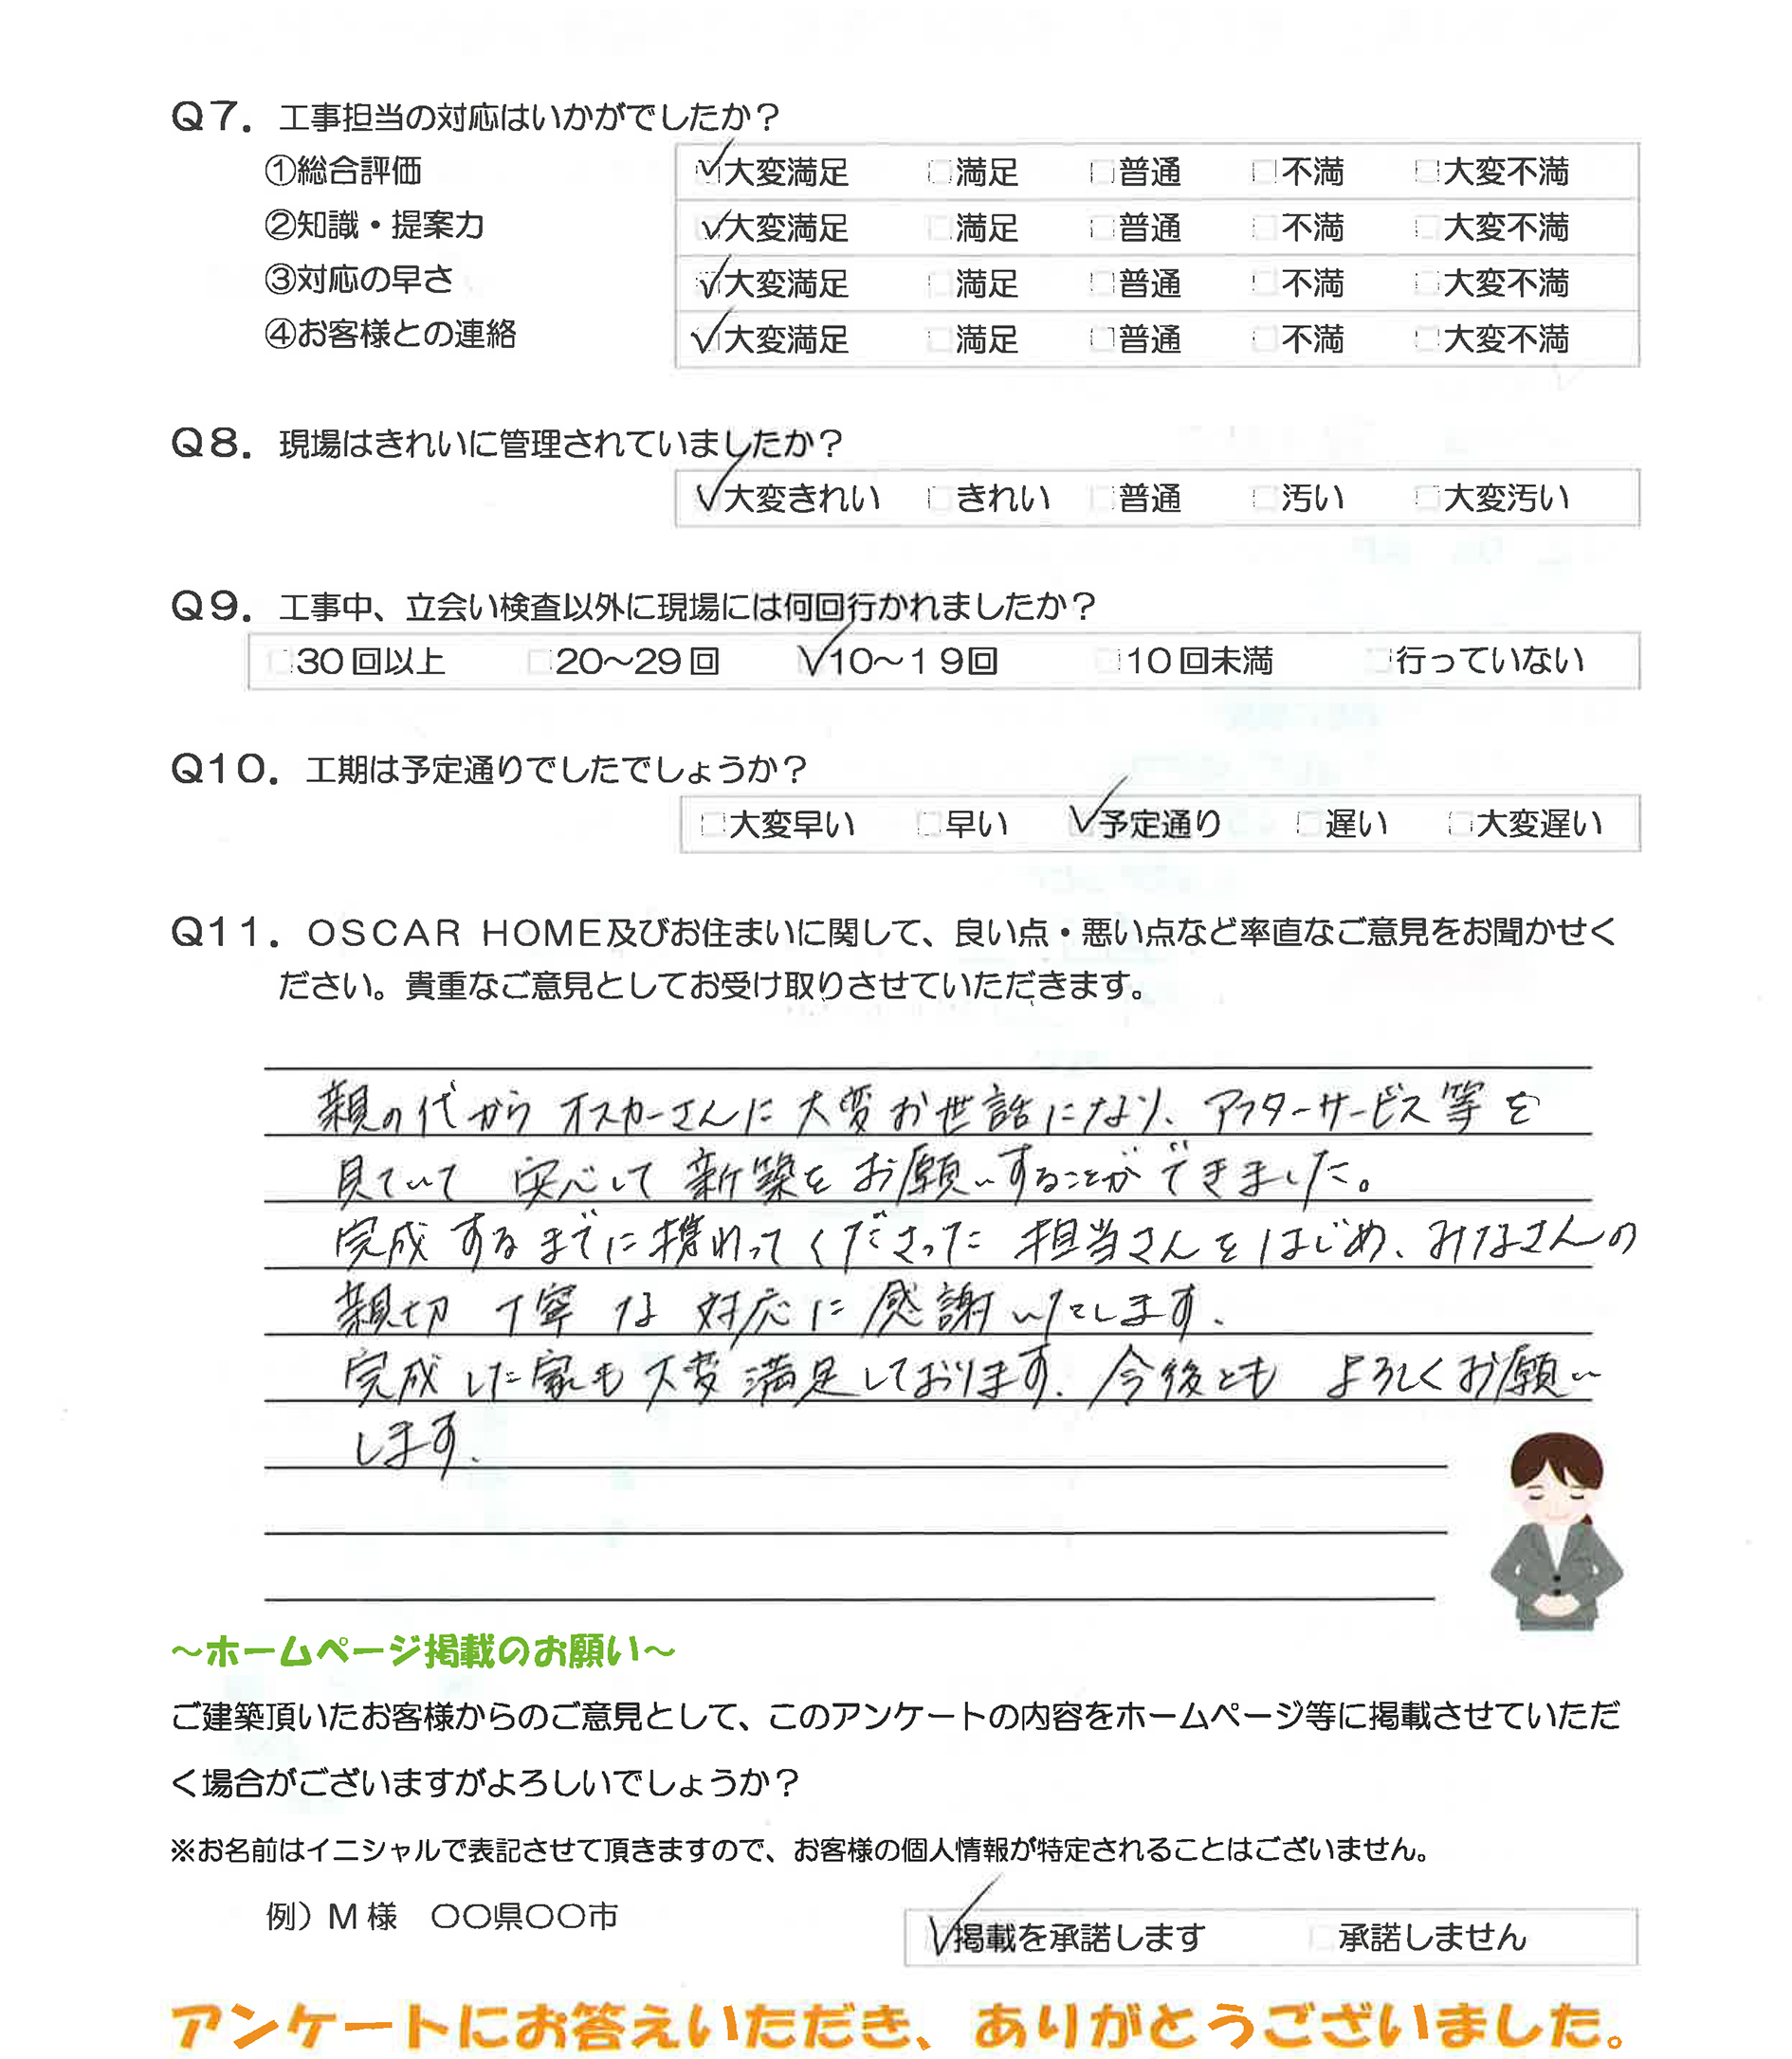 Q7. 工事担当の対応はいかがでしたか？
①総合評価 ✓大変満足 □満足 □普通 □不満 □大変不満
②知識・提案力 ✓大変満足 □満足 □普通 □不満 □大変不満
③対応の早さ ✓大変満足 □満足 □普通 □不満 □大変不満
④お客様との連絡 ✓大変満足 □満足 □普通 □不満 □大変不満
Q8. 現場はきれいに管理されていましたか？
✓大変きれい □きれい □普通 □汚い □大変汚い
Q9. 工事中、立会い検査以外に現場には何回行かれましたか？
□30回以上 □20〜29回 ✓10〜19回 □10回未満 □行っていない
Q10. 工期は予定通りでしたでしょうか？
□大変早い □早い ✓予定通り □遅い □大変遅い
Q11. OSCAR HOME及びお住まいに関して、良い点・悪い点など率直なご意見をお聞かせく
ださい。貴重なご意見としてお受け取りさせていただきます。
親の代からオスカーさんに大変お世話になり、アフターサービス等を
見ていて 安心して新築をお願いすることができました。
完成するまでに携わってくださった担当さんをはじめ、みなさんの
親切丁寧な対応に感謝いたします.
完成した家も大変満足しております.今後ともよろしくお願い
します.
〜ホームページ掲載のお願い〜
ご建築頂いたお客様からのご意見として、このアンケートの内容をホームページ等に掲載させていただ
く場合がございますがよろしいでしょうか？
※お名前はイニシャルで表記させて頂きますので、お客様の個人情報が特定されることはございません。
例）M様 〇〇県〇〇市
✓掲載を承諾します □承諾しません
アンケートにお答えいただき、ありがとうございました。